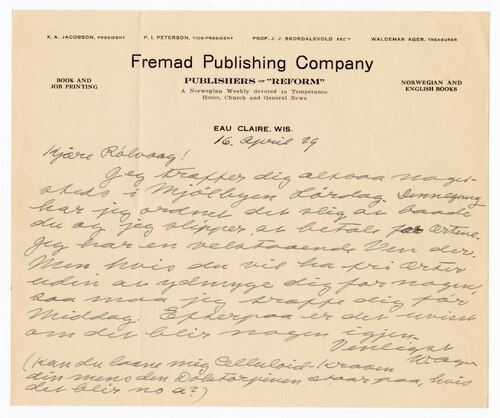 K. A. JACOBSON, PRESIDENT P. I. PETERSON, VICE-PRESIDENT PROF. J. J. SKORDALSVOLD SEC'Y WALDEMAR AGER, TREASURER
Fremad Publishing Company
BOOK AND
JOB PRINTING
PUBLISHERS OF "REFORM"
A Norwegian Weekly devoted to Temperance
Home, Church and General News
NORWEGIAN AND
ENGLISH BOOKS
EAU CLAIRE, WIS.
16. April 29
Kjære Rölvaag!
Jeg træffer dig altsaa noget
steds i Mjölbyen Lördag. Dennegang
har jeg ordnet det slig at baade
du og jeg slipper at betale for ærtene.
Jeg har en velstaaende Ven der.
Men hvis du vil ha fri ærter
uden at ydmyge dig for nogen,
saa maa jeg træffe dig før
Middag. Efterpaa er det uvist
om det blir nogen igjen.
Venligst
W. Ager
(Kan du laane mig Celluloid-Kraven
din mens den staar paa, hvis
det blir no a?)